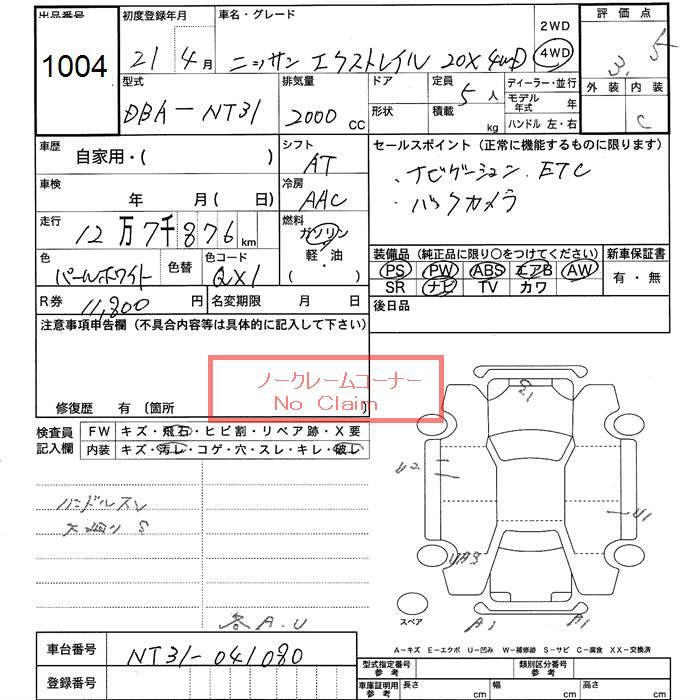 出品番号
1004
初度登録年月
21 4月
車名・グレード
ニッサン エクストレイル 20X 4WD
2WD
4WD
評価点
3.5
外装 内装
C
型式
DBA-NT31
排気量
2000 cc
ドア
形状
定員
5人
積載
kg
ディーラー・並行
モデル年式 年
ハンドル 左・右
車歴
自家用・( )
シフト
AT
セールスポイント (正常に機能するものに限ります)
・ナビゲーション. ETC
・バックカメラ
車検
年 月 ( 日)
冷房
AAC
走行
12万7千876km
燃料
ガソリン
軽・油
( )
色
パールホワイト
色替
色コード
QX1
装備品 (純正品に限り○をつけてください)
新車保証書
PS PW ABS エアB AW
有・無
SR ナビ TV カワ
R券
11,800円
名変期限 月 日
後日品
注意事項申告欄 (不具合内容等は具体的に記入して下さい)
ノークレームコーナー
No Claim
修復歴 有 〔箇所 〕
検査員記入欄
FW キズ・飛石・ヒビ割・リペア跡・X要
内装 キズ・汚レ・コゲ・穴・スレ・キレ・破レ
ハンドルスレ
S1
U2
U1
UA3
各A.U
スペア
A1
A-キズ E-エクボ U-凹み W-補修跡 S-サビ C-腐食 XX-交換済
車台番号
NT31-041080
登録番号
型式指定番号
参考
類別区分番号
参考
車庫証明用
参考
長さ cm
幅 cm
高さ cm